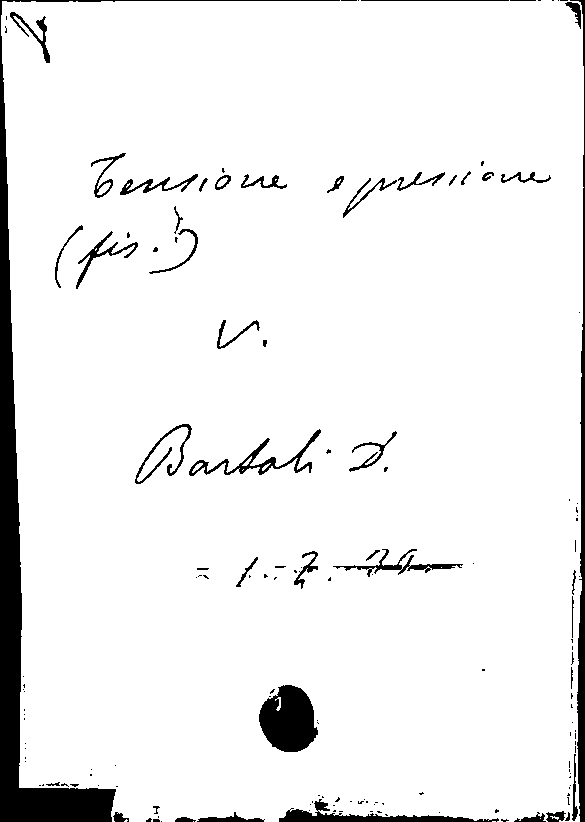 Tensione e pressione
(fis.)
V.
Bartoli D.
= 1. - Z.